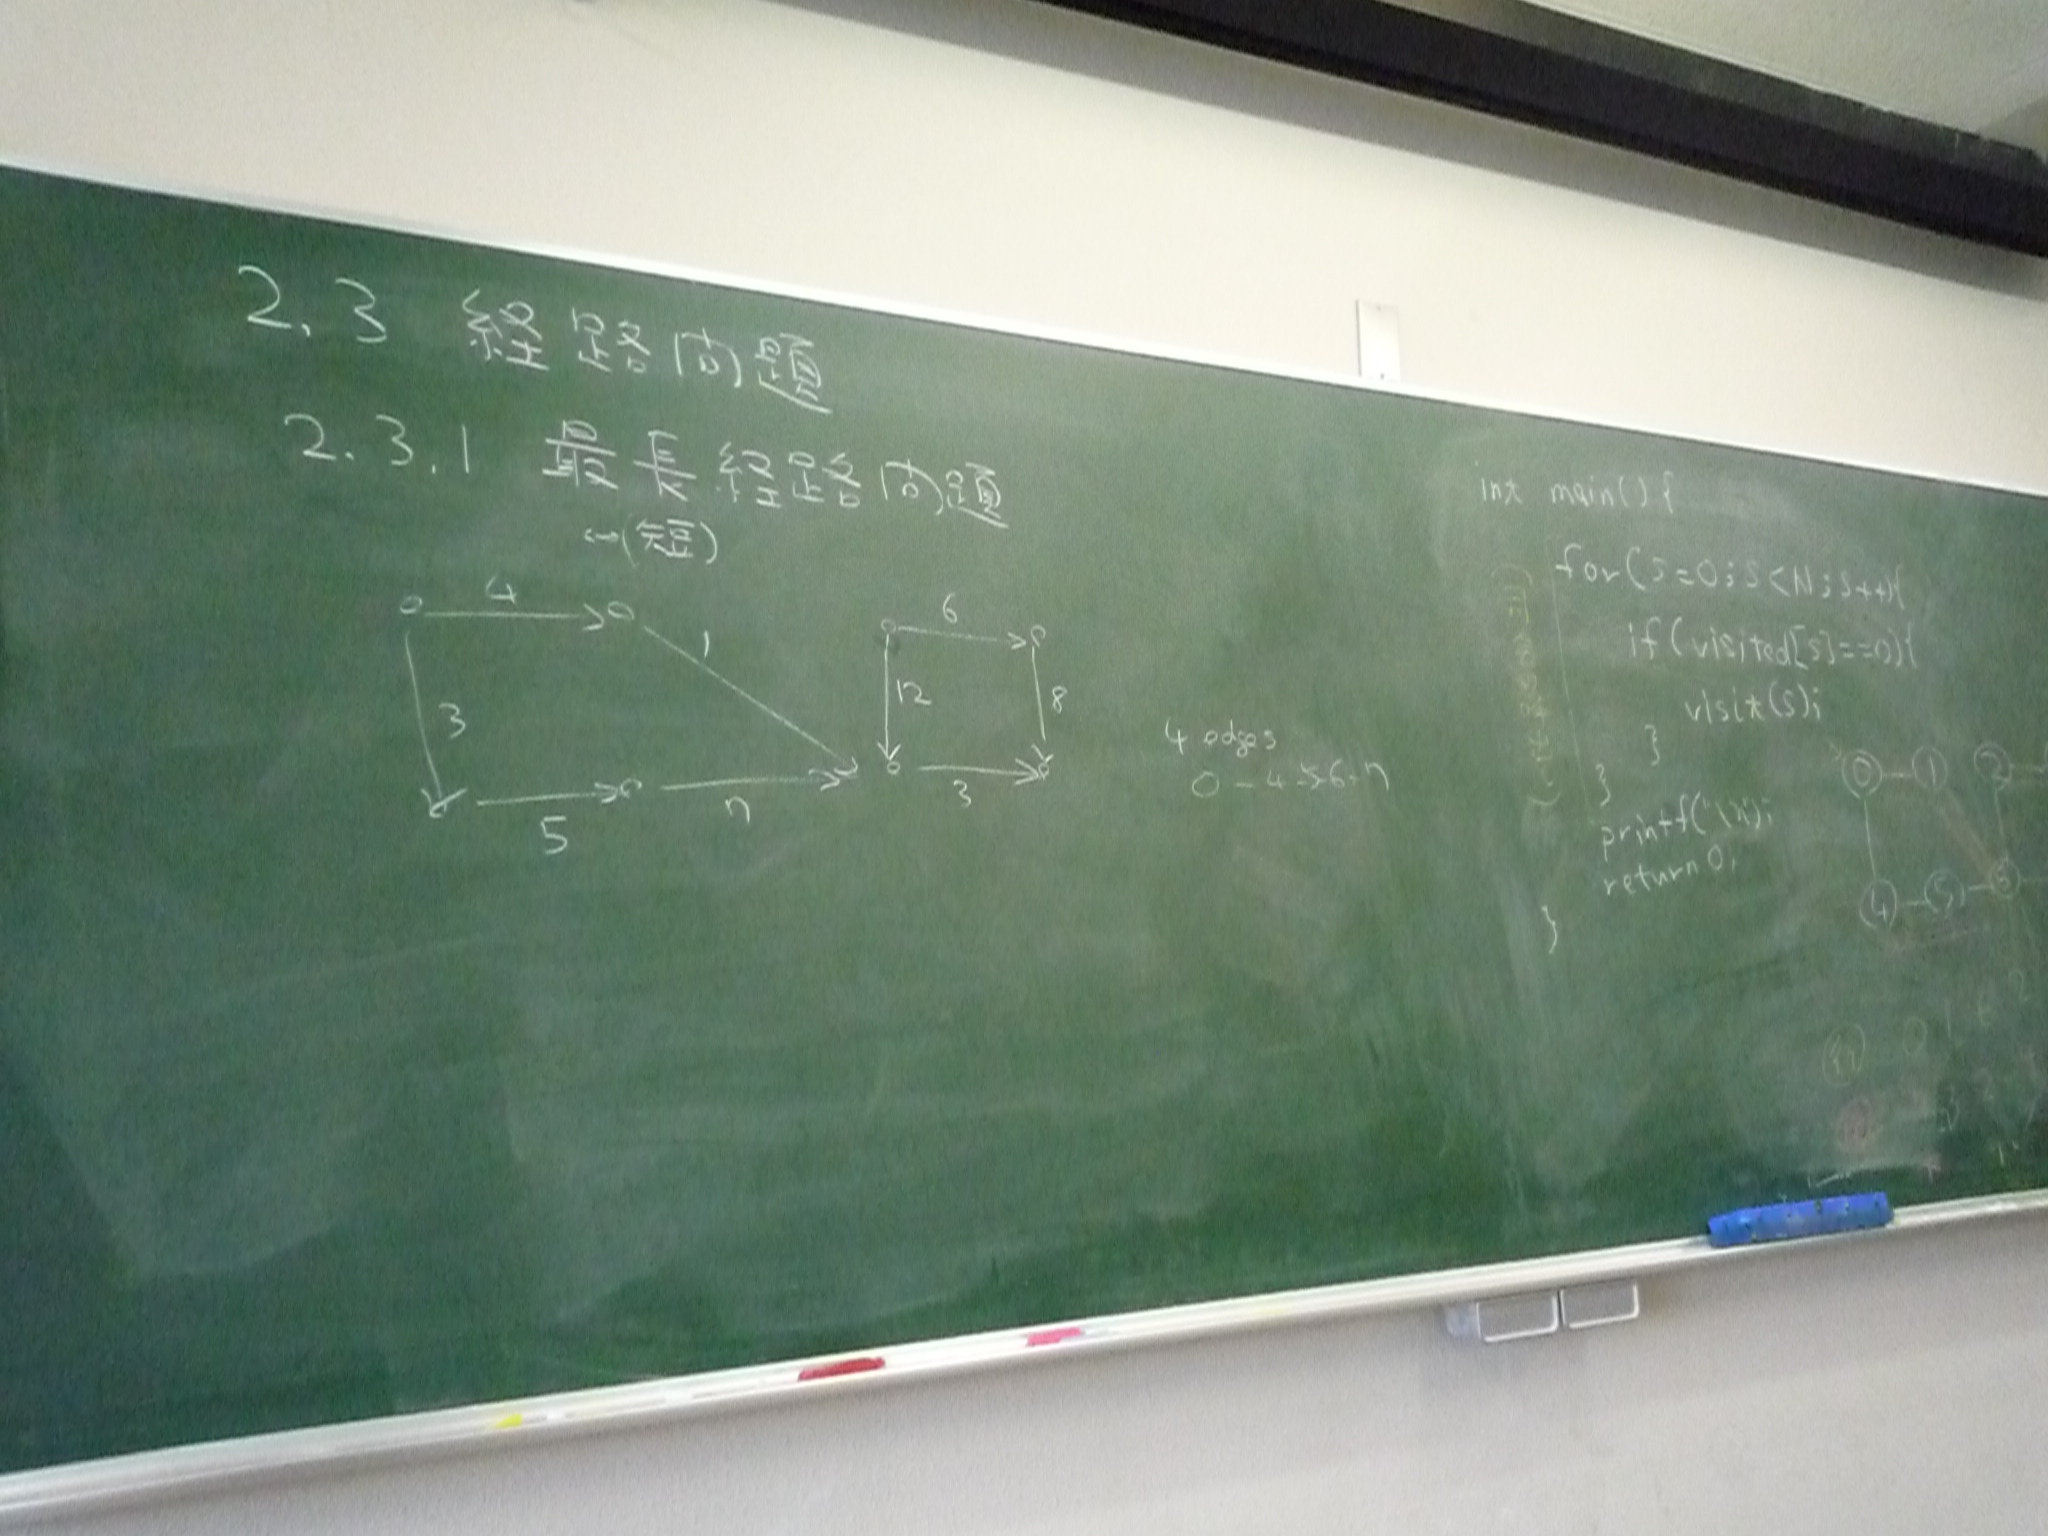 2.3 経路問題
2.3.1 最長経路問題
↔(短)
4
1
3
5
7
6
12
8
3
4 edges
0-4-5-6-7
int main(){
for(s=0;s<N;s++){
if(visited[s]==0){
visit(s);
}
}
printf("\n");
return 0;
}
0 1 2
4 5 6